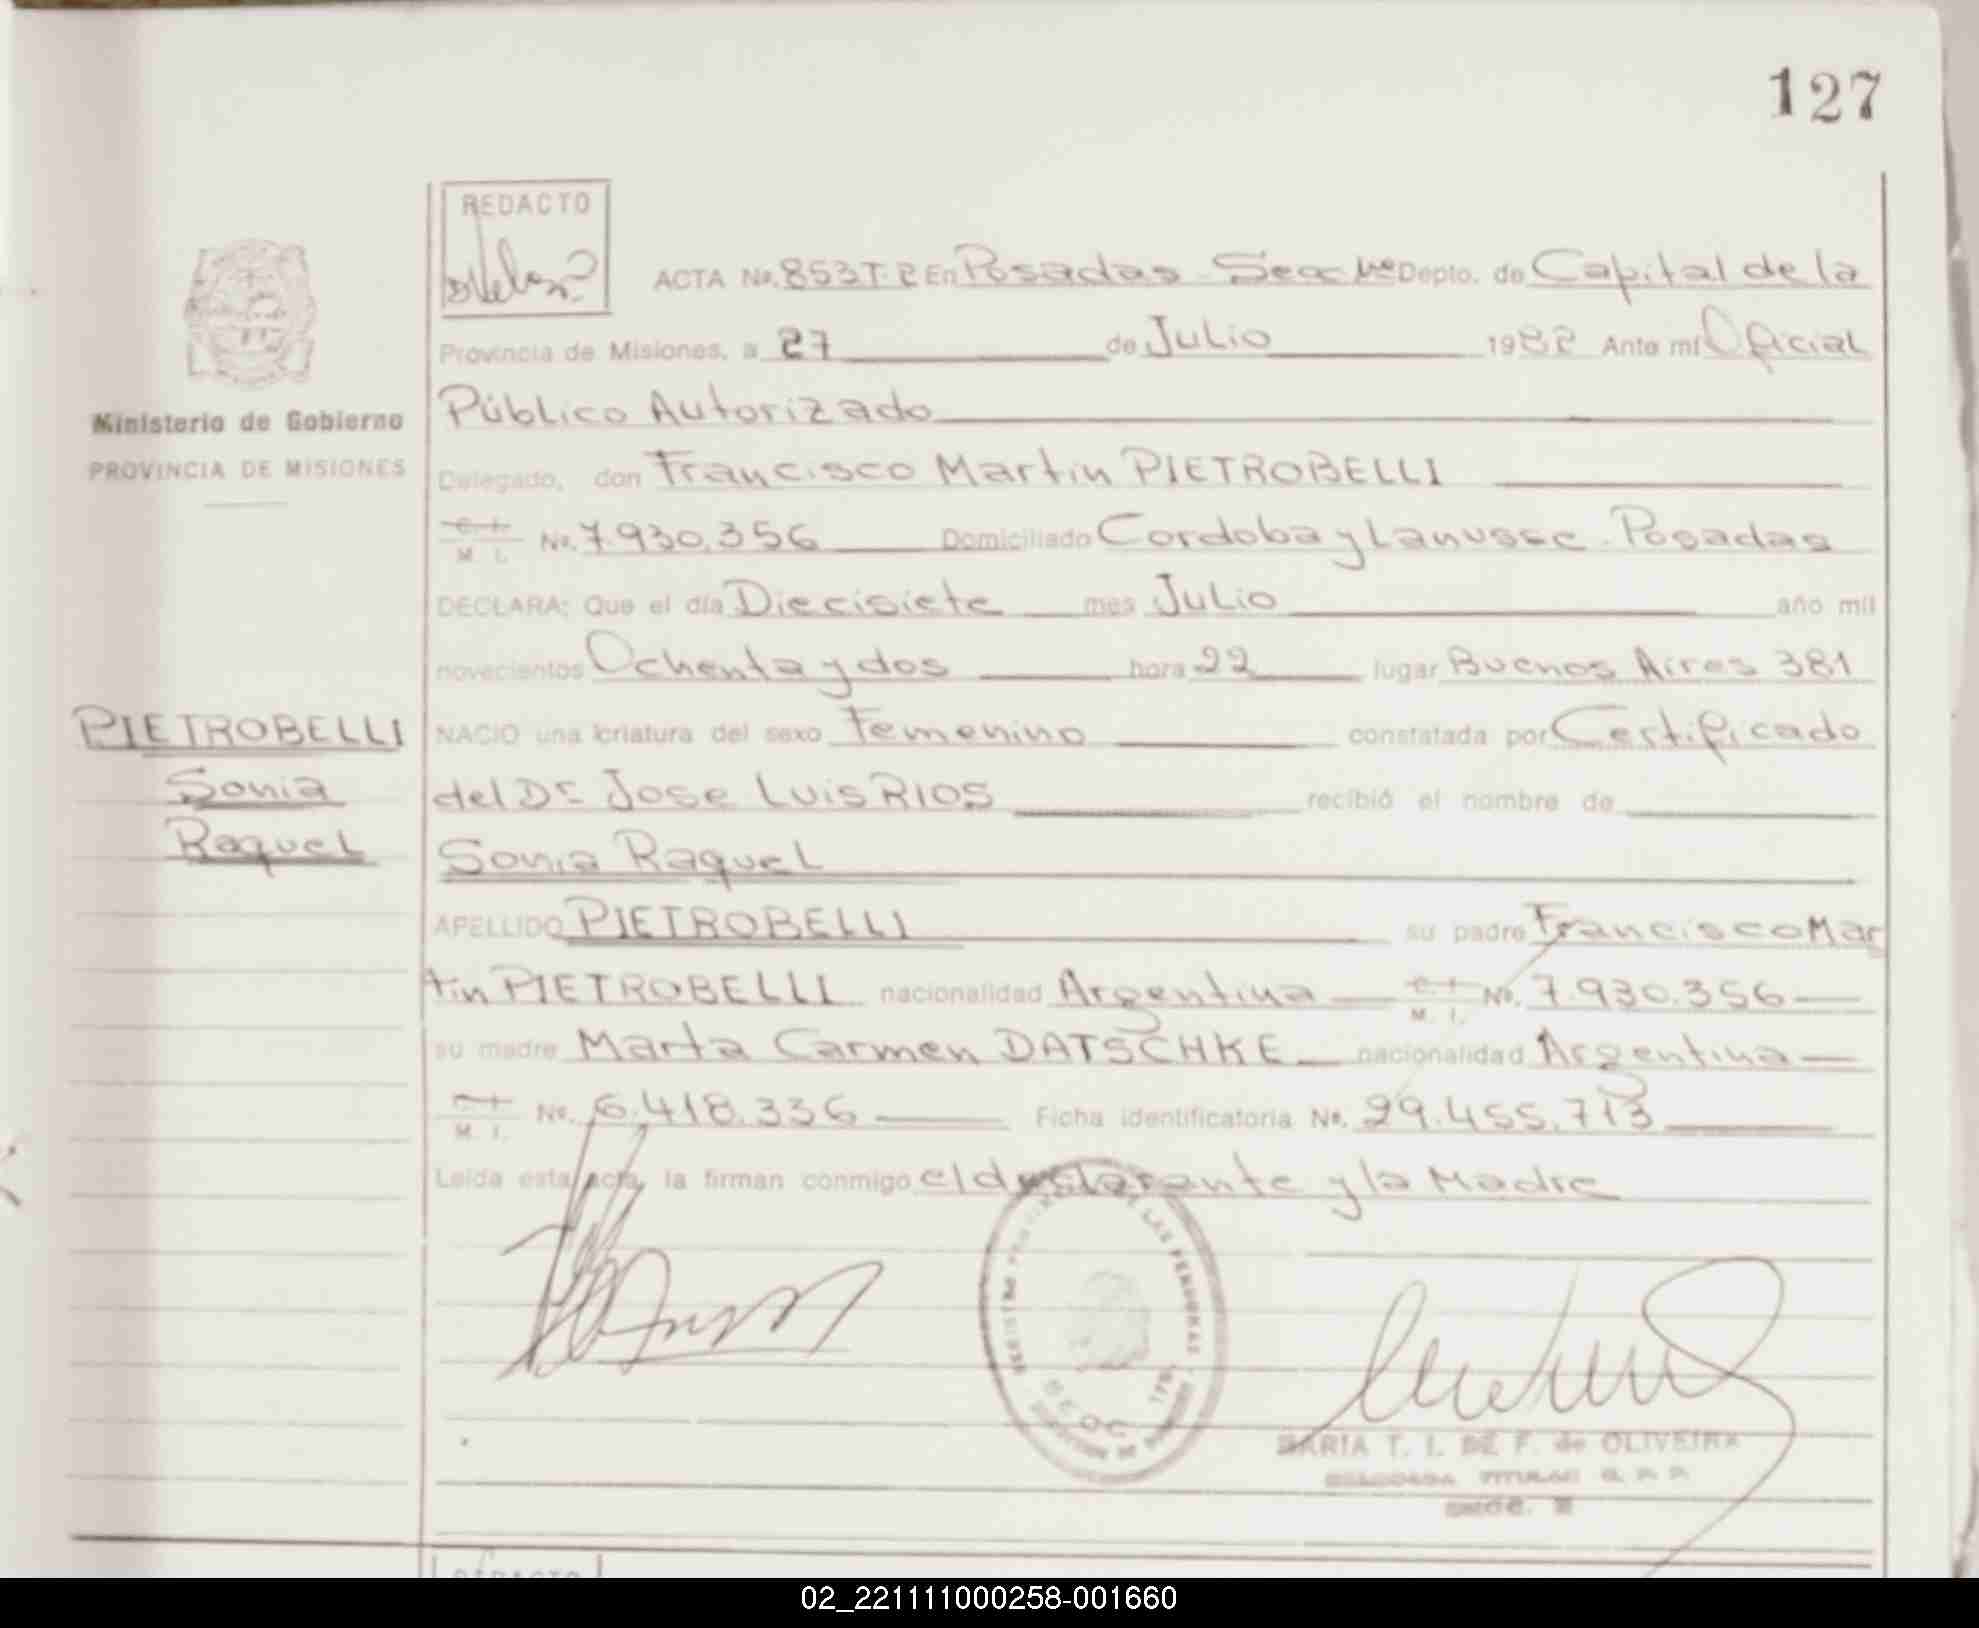 127
REDACTO
ACTA No. 853 T. 2 En Posadas Depto. de Capital de la
Provincia de Misiones, a 27 de Julio 1982 Ante mí Oficial
Ministerio de Gobierno
PROVINCIA DE MISIONES
Público Autorizado
Delegado, don Francisco Martin PIETROBELLI
C. I. M. I. No. 7.930.356 Domiciliado Cordoba y Lanusse - Posadas
DECLARA: Que el día Diecisiete mes Julio año mil
novecientos Ochenta y dos hora 22 lugar Buenos Aires 381
PIETROBELLI
Sonia
Raquel
NACIO una criatura del sexo Femenino constatada por Certificado
del Dr Jose Luis RIOS recibió el nombre de
Sonia Raquel
APELLIDO PIETROBELLI su padre Francisco Mar
tin PIETROBELLI nacionalidad Argentina C. I. M. I. No. 7.930.356
su madre Marta Carmen DATSCHKE nacionalidad Argentina
C. I. M. I. No. 6.418.336 Ficha identificatoria No. 29.455.713
Leída esta acta, la firman conmigo el declarante y la Madre
MARIA T. I. DE F. de OLIVEIRA
02_221111000258-001660